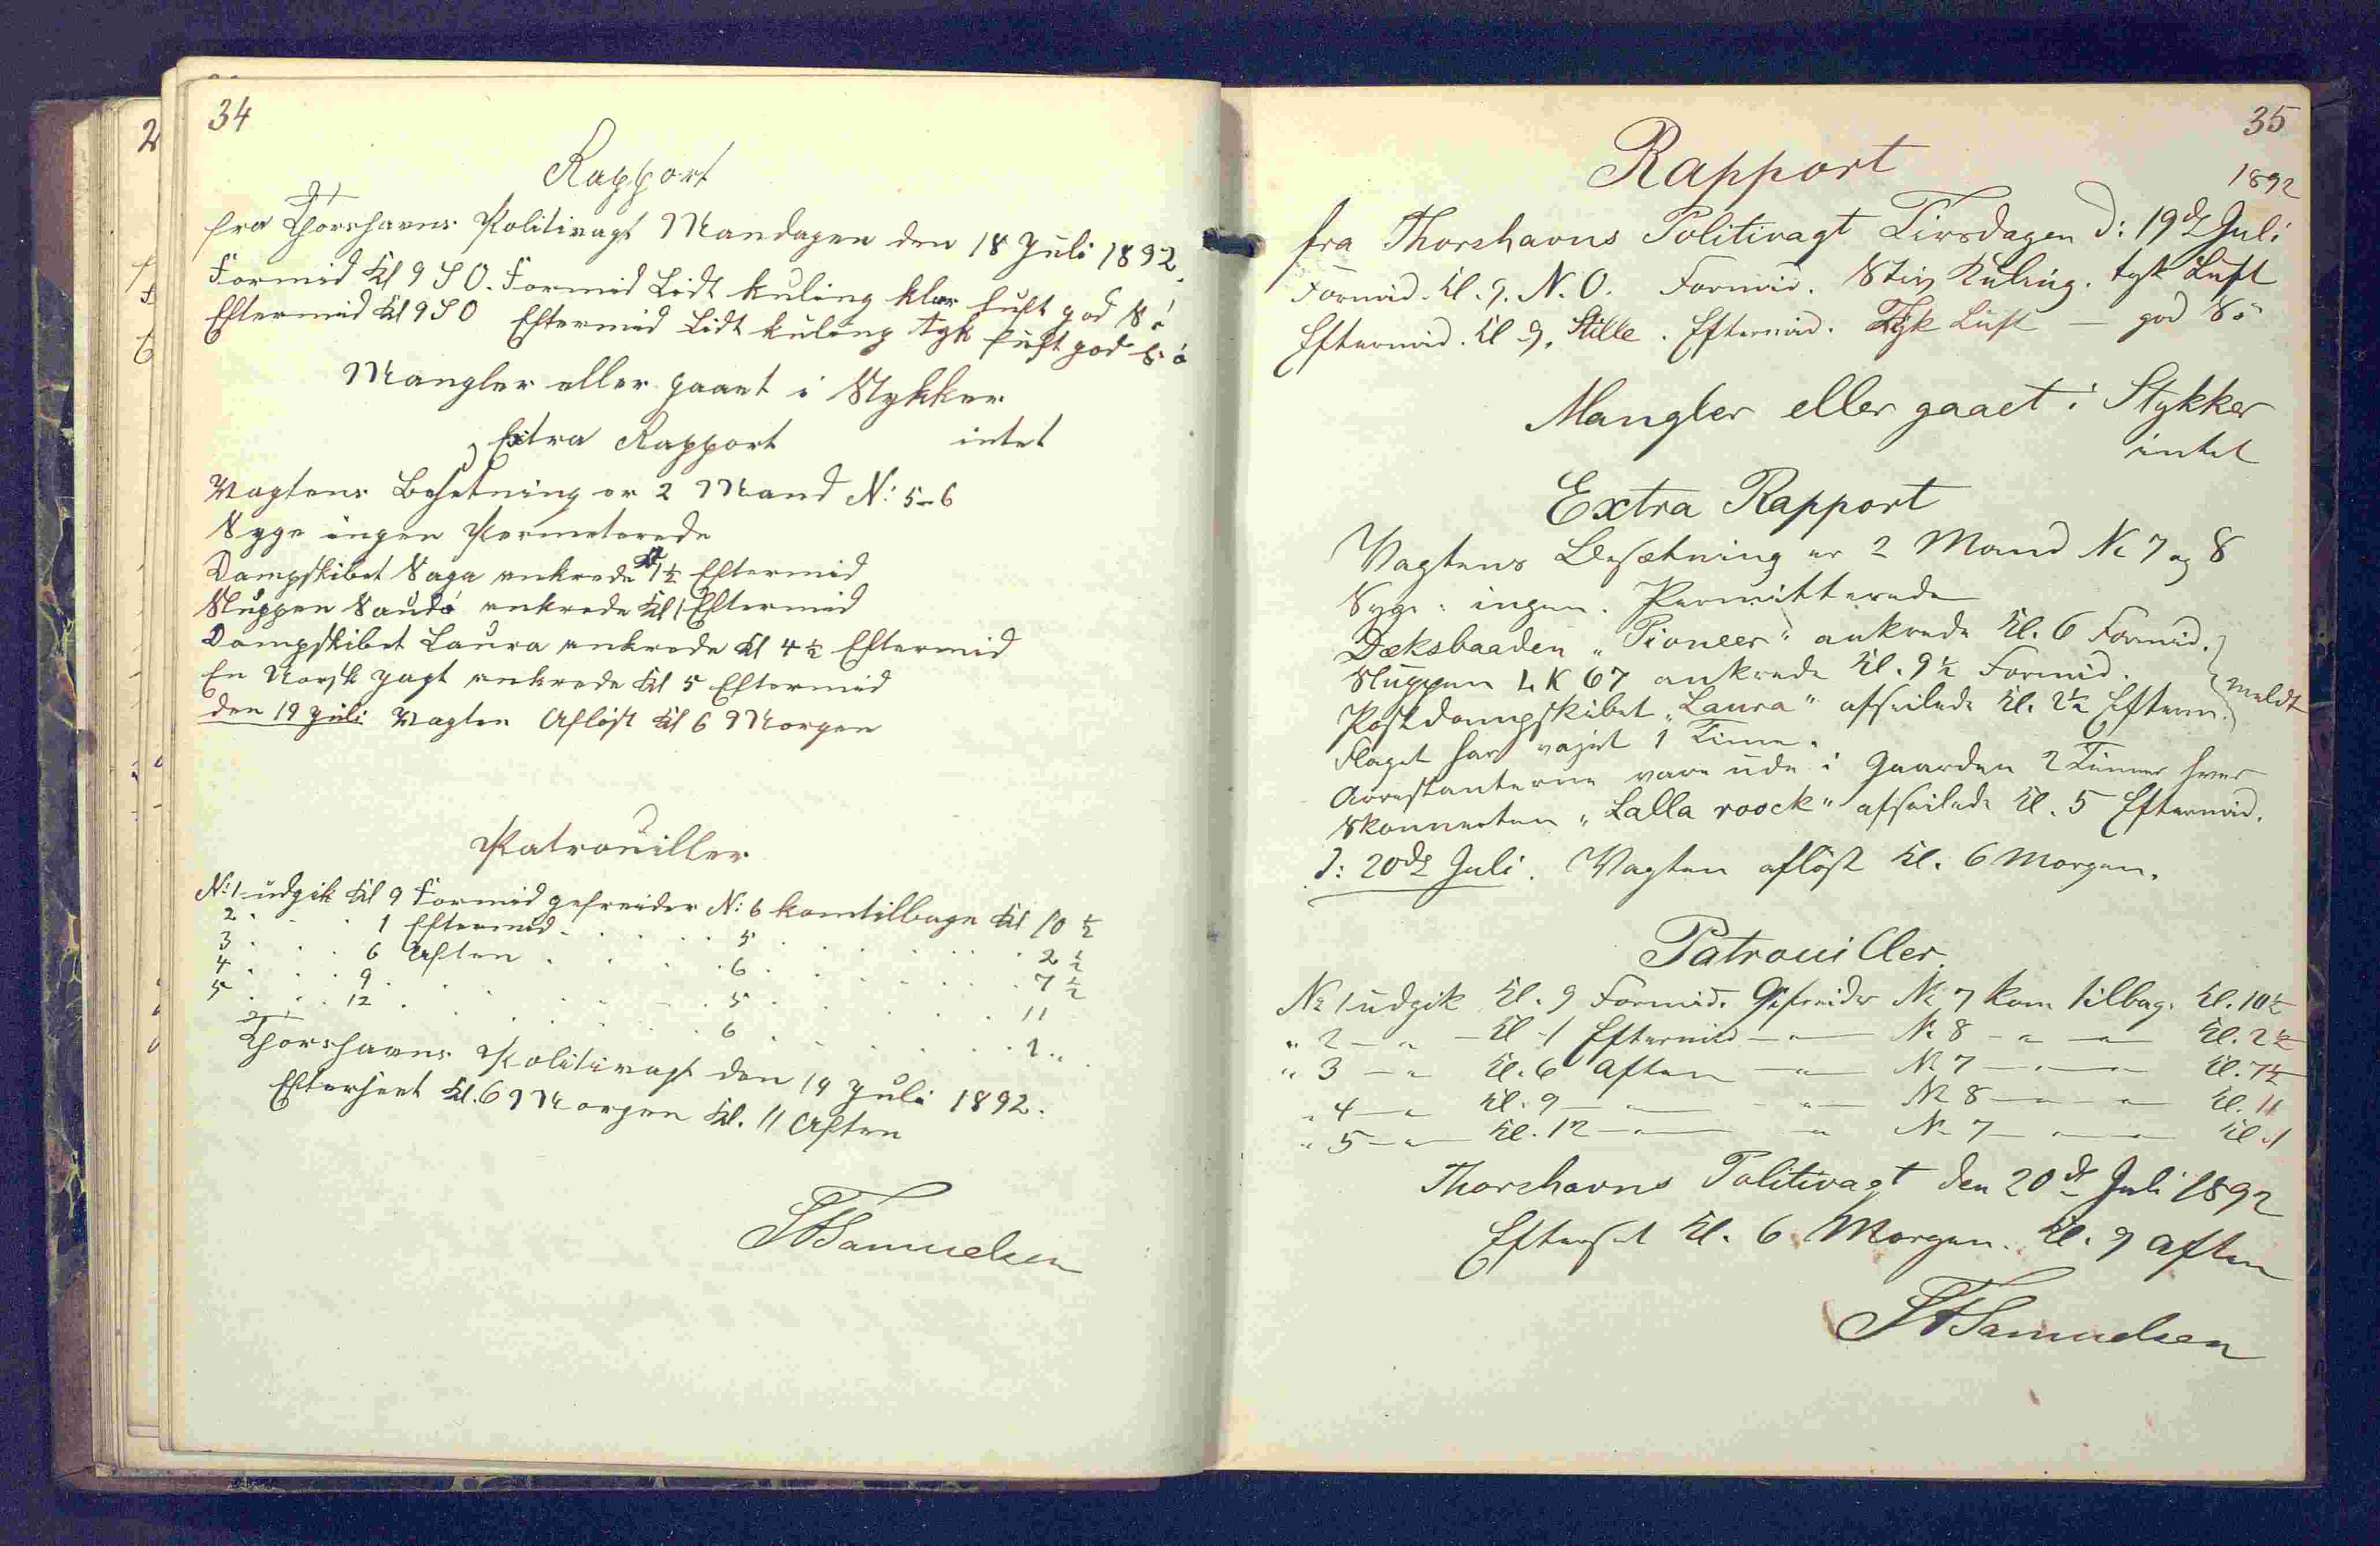 34
Rapport
fra Thorshavns Politivagt Mandagen den 18 Juli 1892.
Formid Kl 9 SO. Formid Lidt kuling klar Luft god Sö
Eftermid Kl 9 SO Eftermid Lidt kuling tyk Luft god Sö
Mangler eller gaaet i Stykker
intet
Extra Rapport
Vagtens Besetning er 2 Mand N: 5-6
Syge ingen Permeterede
Dampskibet Saga ankrede Kl 1½ Eftermid
Sluppen Sandö ankrede Kl 1 Eftermid
Dampskibet Laura ankrede Kl 4½ Eftermid
En Norsk Jagt ankrede Kl 5 Eftermid
den 19 Juli Vagten Aflöst Kl 6 Morgen
Patrouiller
N: 1 udgik Kl 9 Formid gefreider N: 6 kom tilbage Kl 10 ½
2 . . . 1 Eftermid . . . . 5 . . . . . 2 ½
3 . . . 6 Aften . . . . 6 . . . . . 7 ½
4 . . . 9 . . . . . 5 . . . . . 11
5 . . . 12 . . . . . 6 . . . . . 1 . .
Thorshavns Politivagt den 19 Juli 1892.
Efterseet Kl. 6 Morgen Kl. 11 Aften
Samuelsen
35
Rapport
1892
fra Thorshavns Politivagt Tirsdagen d: 19de Juli
Formid. Kl. 9. N. O. Formid. Stiv Kuling. tyk Luft
Eftermid. Kl 9. Stille. Eftermid. Tyk Luft — god Sö
Mangler eller gaaet i Stykker
intet
Extra Rapport
Vagtens Besætning er 2 Mand No 7 og 8
Syge: ingen. Permitterede
Dæksbaaden „Pioneer" ankrede Kl. 6 Formid.
Sluppen LK 67 ankrede Kl. 9½ Formid.
meldt
Postdampskibet „Laura" afseilede Kl. 2½ Efterm.
Flaget har vajet 1 Time.
Arrestanterne vare ude i Gaarden 2 Timer hver
Skonnerten „Lalla roock" afseilede Kl. 5 Eftermid.
d: 20de Juli. Vagten aflöst Kl. 6 Morgen.
Patrouiller
No 1 udgik Kl. 9 Formid. Gefreider No 7 kom tilbag. Kl. 10½
" 2 — " — Kl 1 Eftermid — " — No 8 — " — " — Kl. 2½
" 3 — " Kl. 6 Aften — " — No 7 — " — " — Kl. 7½
" 4 — " Kl. 9 — " — " — No 8 — " — " — Kl. 11
" 5 — " — Kl. 12 — " — " No 7 — " — " — Kl 1
Thorshavns Politivagt den 20de Juli 1892
Efterset Kl. 6 Morgen. Kl. 9 Aften
Samuelsen